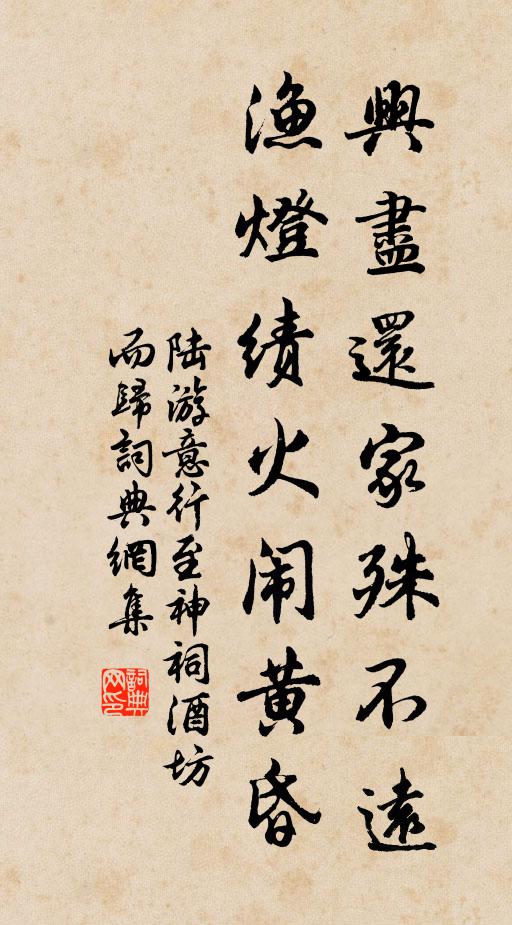 興盡還家殊不遠
漁燈績火闹黄昏
陆游意行至神祠酒坊
而歸詞典網集
詞典网印